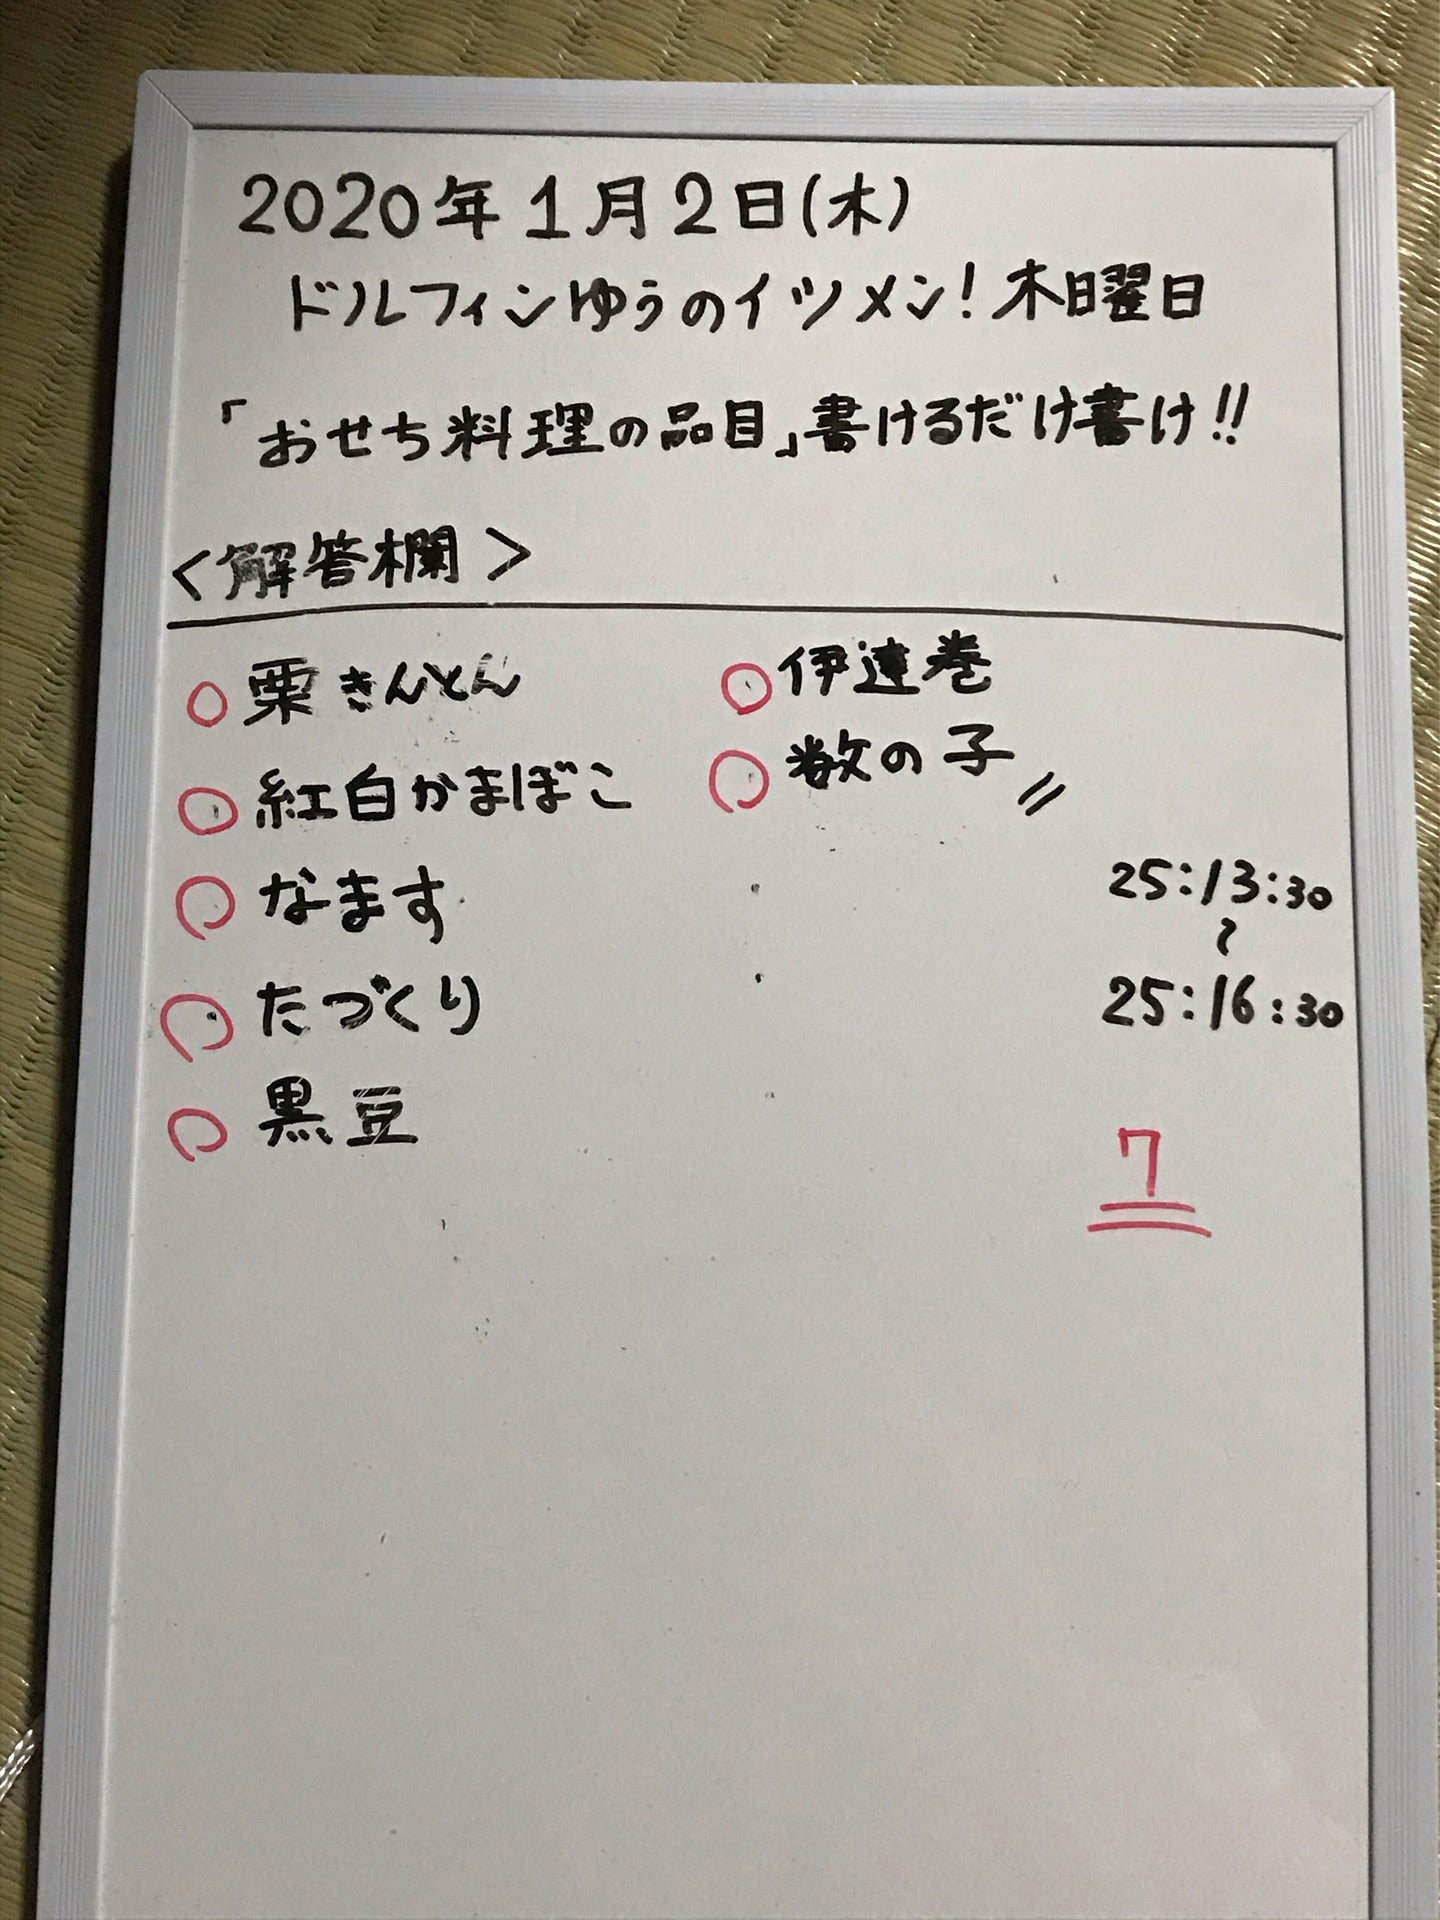 2020年1月2日(木)
ドルフィンゆうのイツメン!木曜日
「おせち料理の品目」書けるだけ書け!!
<解答欄>
○栗きんとん
○紅白かまぼこ
○なます
○たづくり
○黒豆
○伊達巻
○数の子〃
25:13:30
〜
25:16:30
7